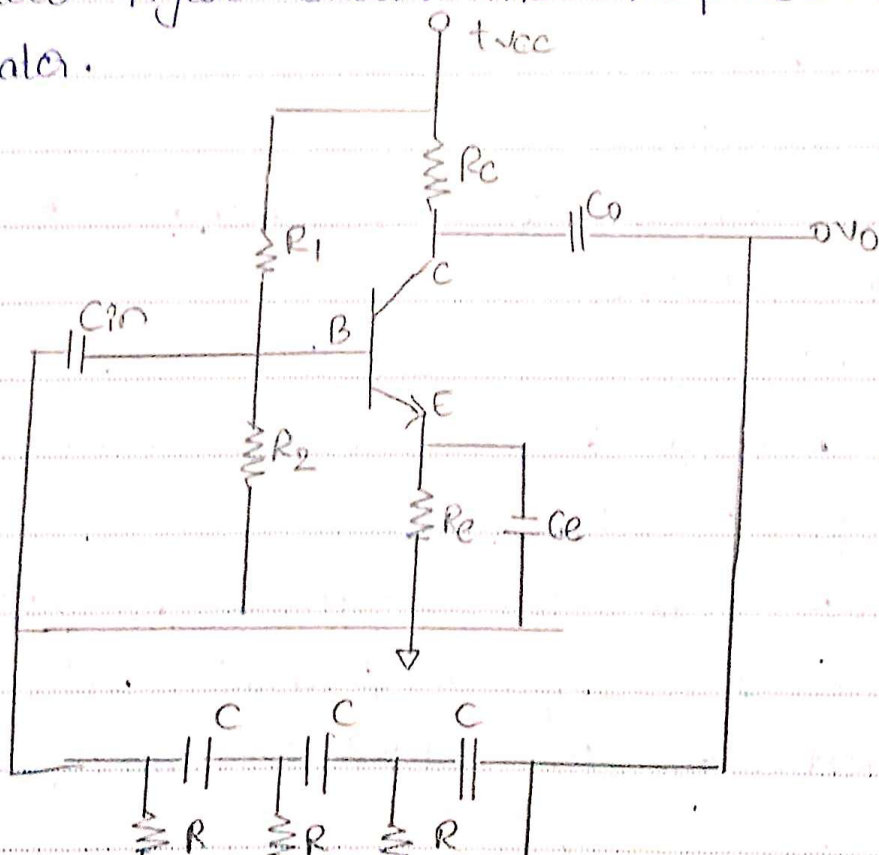 +vcc
Rc
Co
ovo
R1
C
Cin
B
E
R2
Re
Ce
C C C
R R R